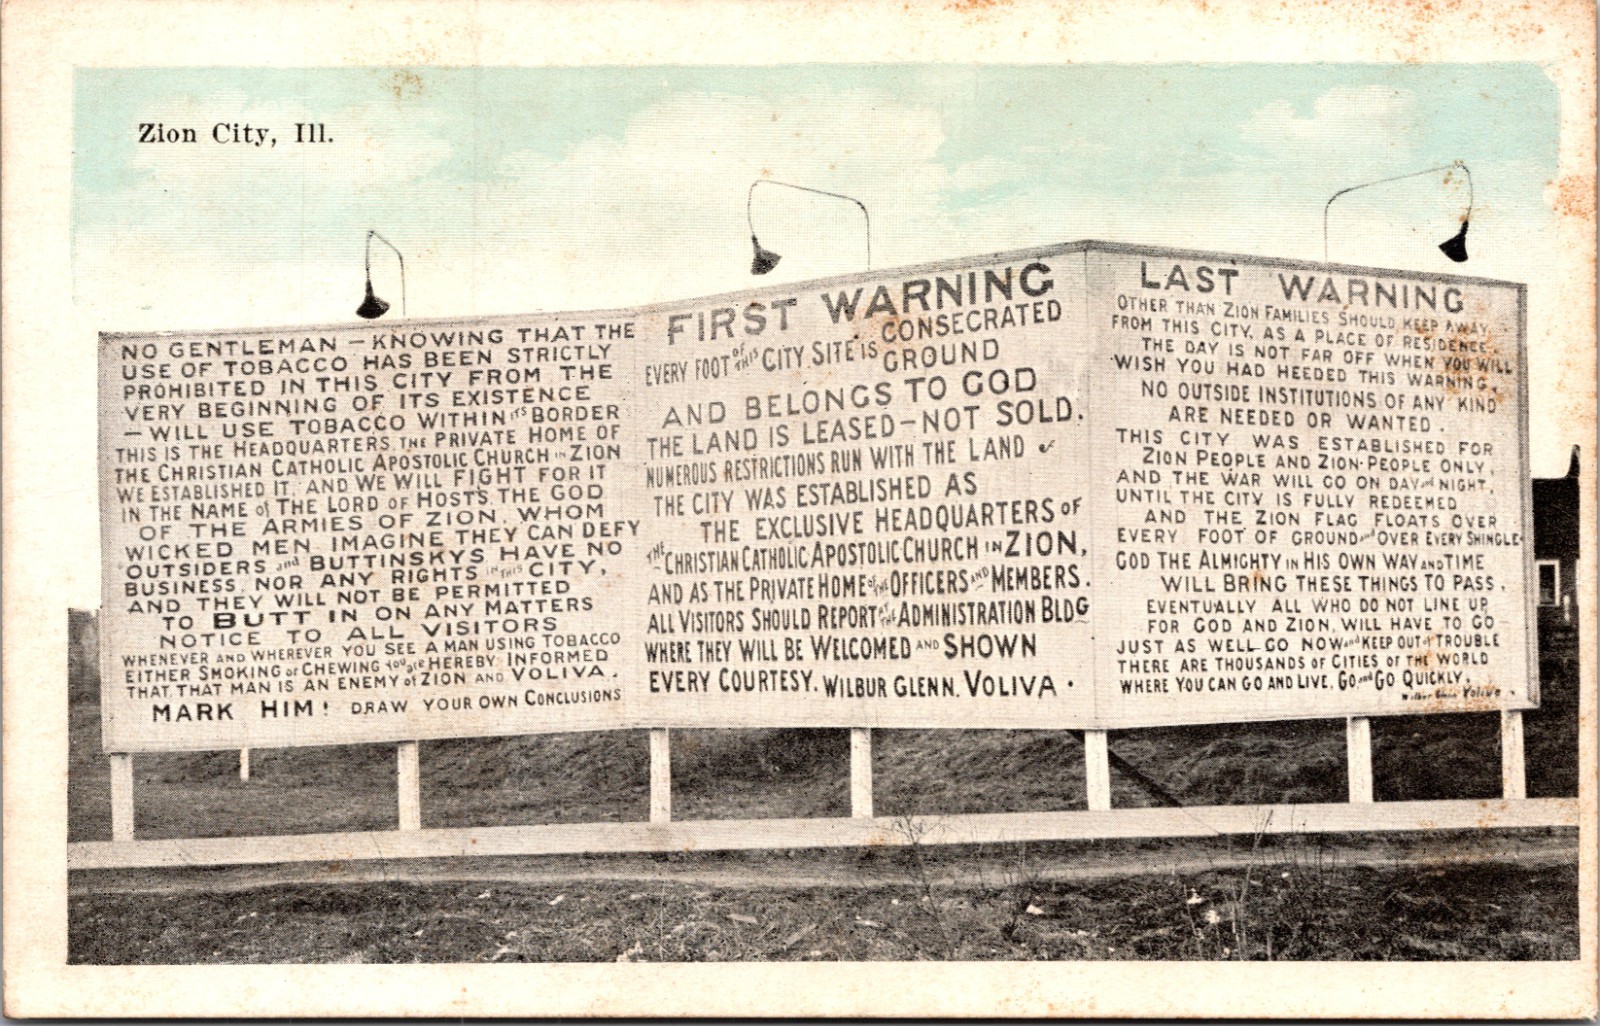 Zion City, Ill.
NO GENTLEMAN — KNOWING THAT THE
USE OF TOBACCO HAS BEEN STRICTLY
PROHIBITED IN THIS CITY FROM THE
VERY BEGINNING OF ITS EXISTENCE
— WILL USE TOBACCO WITHIN ITS BORDER
THIS IS THE HEADQUARTERS THE PRIVATE HOME OF
THE CHRISTIAN CATHOLIC APOSTOLIC CHURCH IN ZION
WE ESTABLISHED IT, AND WE WILL FIGHT FOR IT
IN THE NAME of THE LORD OF HOSTS, THE GOD
OF THE ARMIES OF ZION, WHOM
WICKED MEN IMAGINE THEY CAN DEFY
OUTSIDERS and BUTTINSKYS HAVE NO
BUSINESS, NOR ANY RIGHTS IN THIS CITY,
AND THEY WILL NOT BE PERMITTED
TO BUTT IN ON ANY MATTERS
NOTICE TO ALL VISITORS
WHENEVER AND WHEREVER YOU SEE A MAN USING TOBACCO
EITHER SMOKING or CHEWING you are HEREBY INFORMED
THAT, THAT MAN IS AN ENEMY of ZION AND VOLIVA.
MARK HIM! DRAW YOUR OWN CONCLUSIONS
FIRST WARNING
EVERY FOOT OF THIS CITY SITE IS CONSECRATED GROUND
AND BELONGS TO GOD
THE LAND IS LEASED — NOT SOLD.
NUMEROUS RESTRICTIONS RUN WITH THE LAND
THE CITY WAS ESTABLISHED AS
THE EXCLUSIVE HEADQUARTERS OF
THE CHRISTIAN CATHOLIC APOSTOLIC CHURCH IN ZION,
AND AS THE PRIVATE HOME OF THE OFFICERS AND MEMBERS.
ALL VISITORS SHOULD REPORT AT THE ADMINISTRATION BLDG
WHERE THEY WILL BE WELCOMED AND SHOWN
EVERY COURTESY. WILBUR GLENN. VOLIVA.
LAST WARNING
OTHER THAN ZION FAMILIES SHOULD KEEP AWAY
FROM THIS CITY, AS A PLACE OF RESIDENCE.
THE DAY IS NOT FAR OFF WHEN YOU WILL
WISH YOU HAD HEEDED THIS WARNING.
NO OUTSIDE INSTITUTIONS OF ANY KIND
ARE NEEDED OR WANTED.
THIS CITY WAS ESTABLISHED FOR
ZION PEOPLE AND ZION-PEOPLE ONLY,
AND THE WAR WILL GO ON DAY and NIGHT,
UNTIL THE CITY IS FULLY REDEEMED
AND THE ZION FLAG FLOATS OVER
EVERY FOOT OF GROUND and OVER EVERY SHINGLE
GOD THE ALMIGHTY IN HIS OWN WAY AND TIME
WILL BRING THESE THINGS TO PASS.
EVENTUALLY ALL WHO DO NOT LINE UP
FOR GOD AND ZION, WILL HAVE TO GO
JUST AS WELL GO NOW and KEEP OUT of TROUBLE
THERE ARE THOUSANDS OF CITIES OF THE WORLD
WHERE YOU CAN GO AND LIVE, GO and GO QUICKLY.
Wilbur Glenn Voliva.